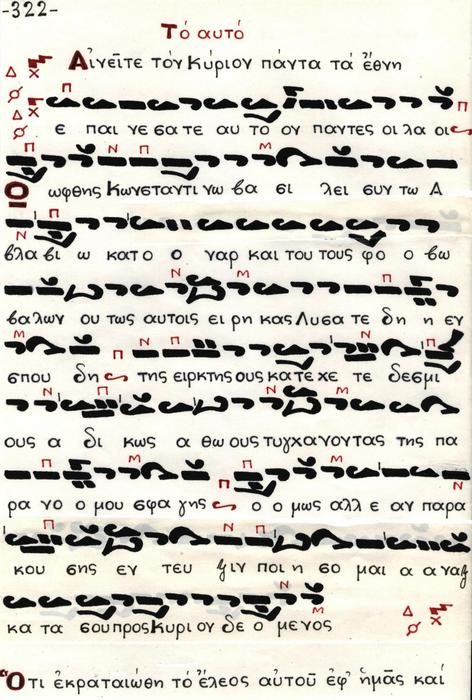 -322-
Τό αυτό
Αἰνεῖτε τόν Κύριον πάντα τά ἔθνη
ε παι νε σα τε αυ το ον παντες οι λα οι
Ο ωφθης Κωνσταντι νω βα σι λει συν τω Α
βλα βι ω κατ ο ο γαρ και του τους φο ο βω
βαλων ου τως αυτοις ει ρη κας Λυσα τε δη η εν
σπου δη της ειρκτης ους κα τε χε τε δεσμι
ους α δι κως α θω ους τυγχανοντας της πα
ρα νο ο μου σφα γης ο ο μως αλλ ε αν παρα
κου σης εν τευ ξιν ποι η σο μαι α αναξ
κα τα σου προς Κυρι ον δε ο μενος
Ὅτι ἐκραταιώθη τό ἔλεος αὐτοῦ ἐφ' ἡμᾶς καί